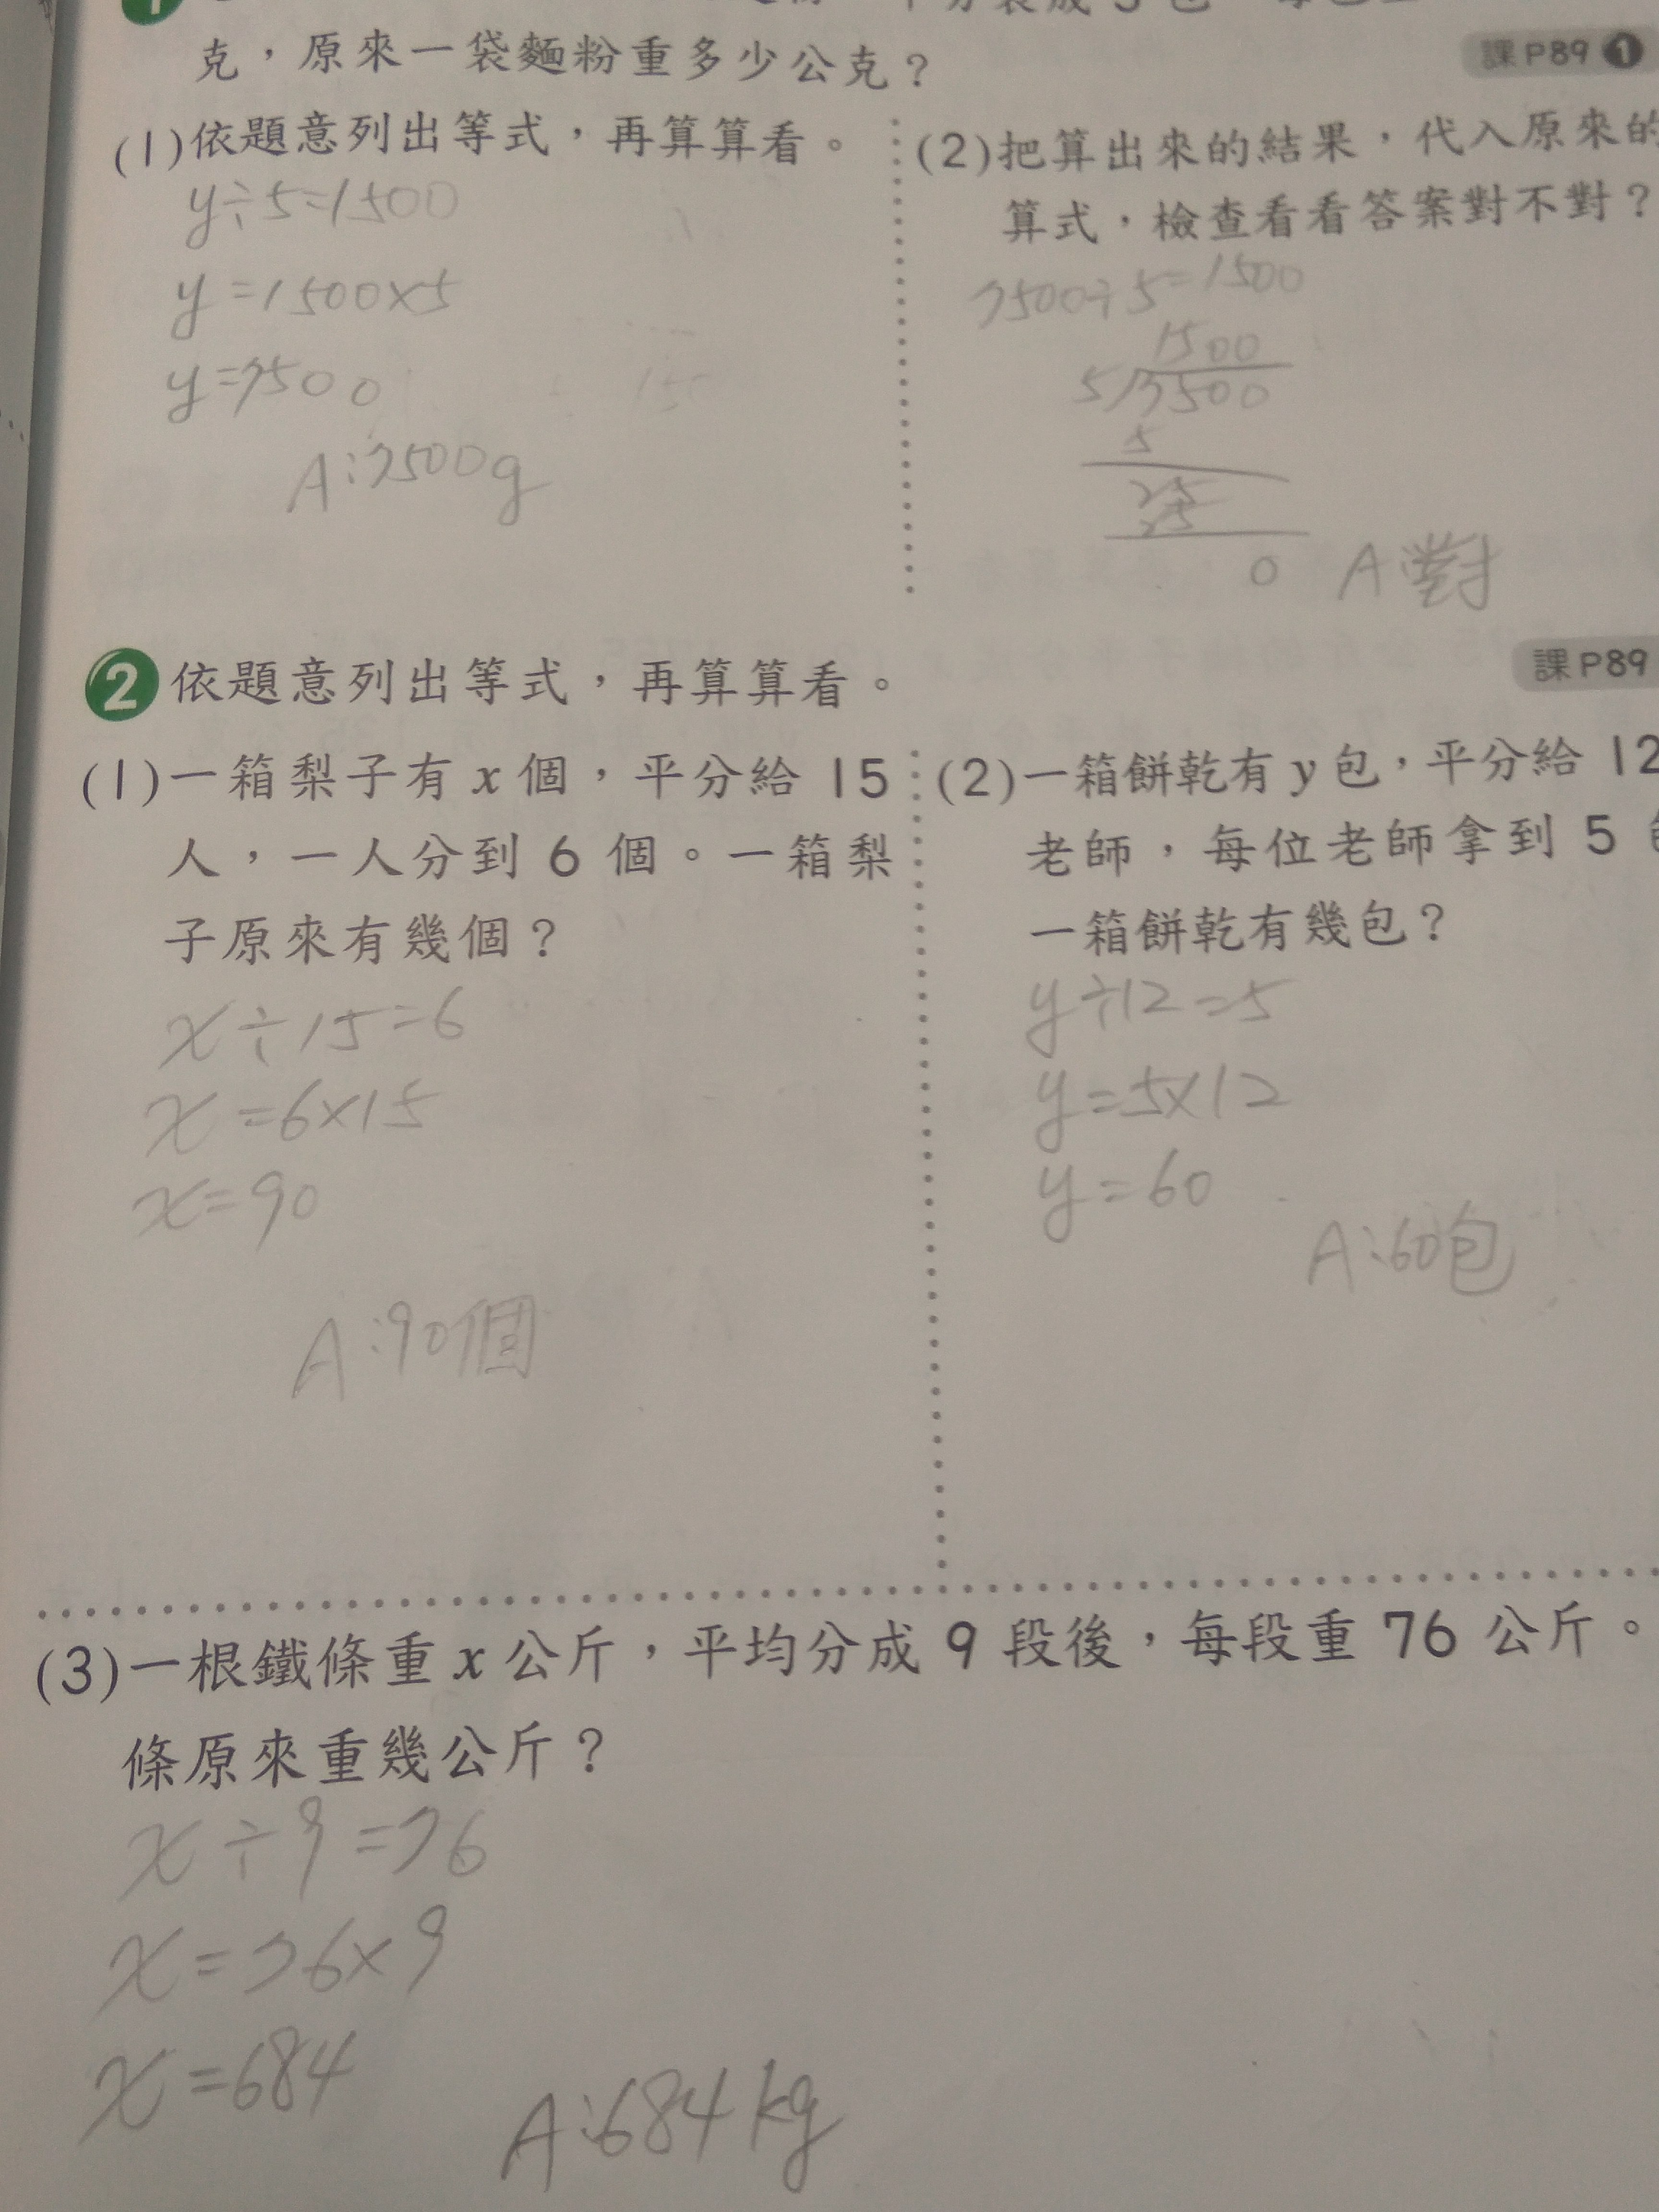 1
克，原來一袋麵粉重多少公克？
課P89 1
(1)依題意列出等式，再算算看。
y÷5=1500
y=1500×5
y=7500
A:7500g
(2)把算出來的結果，代入原來的
算式，檢查看看答案對不對？
7500÷5=1500
1500
5 7500
5
25
25
0
A:對
2 依題意列出等式，再算算看。
課P89
(1)一箱梨子有x個，平分給15
人，一人分到6個。一箱梨
子原來有幾個？
x÷15=6
x=6×15
x=90
A:90個
(2)一箱餅乾有y包，平分給12
老師，每位老師拿到5
一箱餅乾有幾包？
y÷12=5
y=5×12
y=60
A:60包
(3)一根鐵條重x公斤，平均分成9段後，每段重76公斤。
條原來重幾公斤？
x÷9=76
x=76×9
x=684
A:684kg